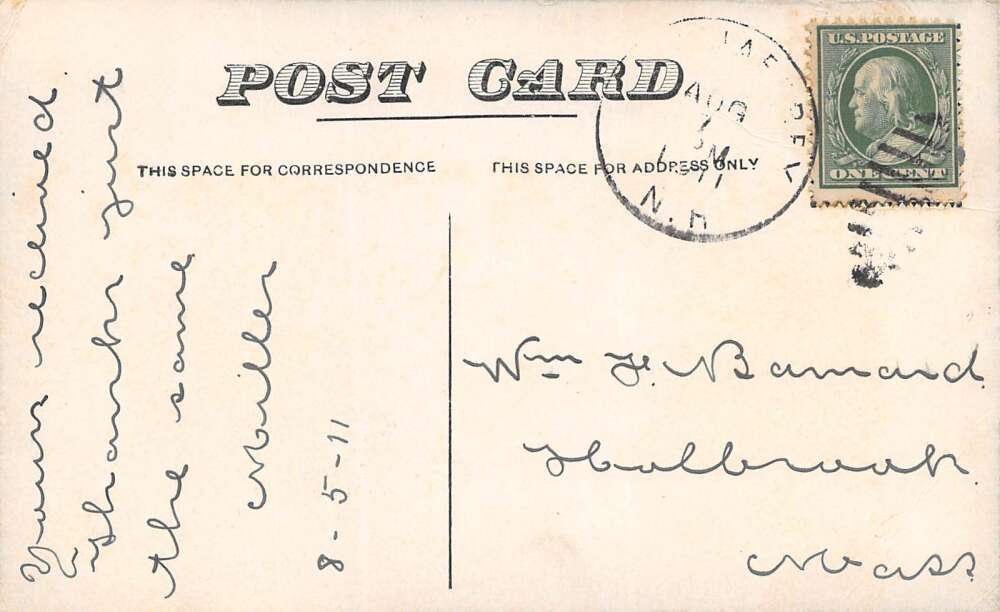 POST CARD
THIS SPACE FOR CORRESPONDENCE
THIS SPACE FOR ADDRESS ONLY
U.S. POSTAGE
ONE CENT
AUG
7
PM
1911
N.H.
Yours received
Thanks just
the same
Miller
8-5-11
Wm F. Barnard
Holbrook
Mass